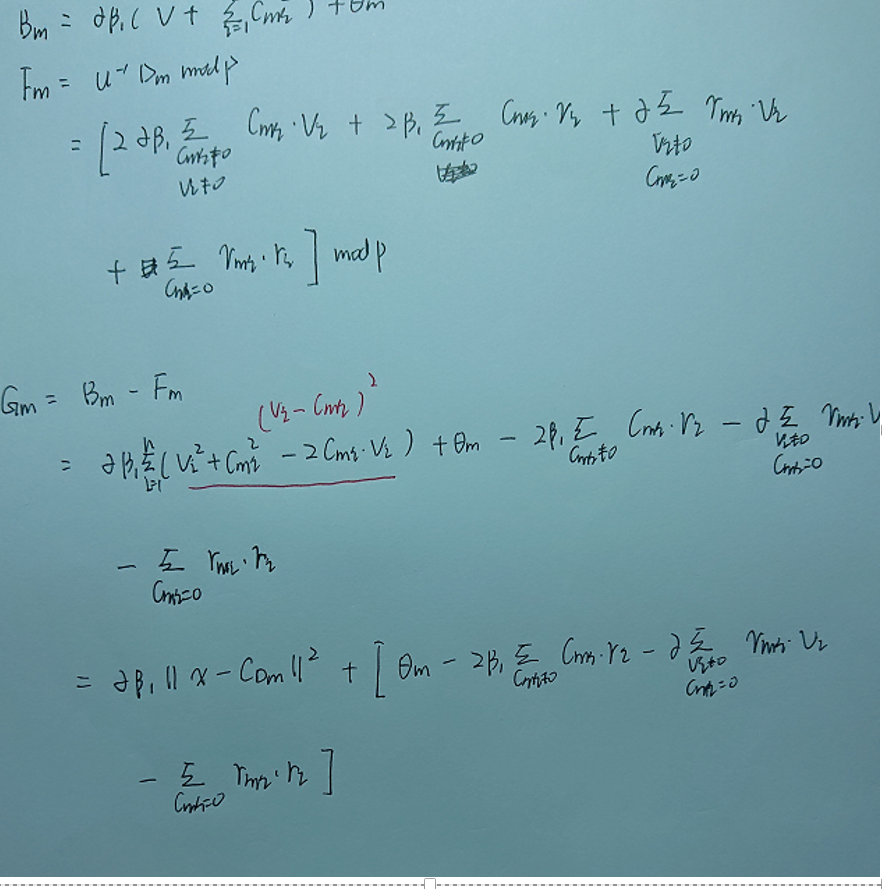 B_m = ∂β₁( V + Σ_{i=1} C_{mi}² ) + θ_m
F_m = u⁻¹ D_m mod p
= [ 2∂β₁ Σ_{C_{mi}≠0, V_i≠0} C_{mi}·V_i + 2β₁ Σ_{C_{mi}≠0} C_{mi}·r_i + ∂ Σ_{V_i≠0, C_{mi}=0} r_{mi}·V_i
+ Σ_{C_{mi}=0} r_{mi}·r_i ] mod p
G_m = B_m - F_m
(V_i - C_{mi})²
= ∂β₁ Σ_{i=1}^{n} ( V_i² + C_{mi}² - 2C_{mi}·V_i ) + θ_m - 2β₁ Σ_{C_{mi}≠0} C_{mi}·r_i - ∂ Σ_{V_i≠0, C_{mi}=0} r_{mi}·V
- Σ_{C_{mi}=0} r_{mi}·r_i
= ∂β₁ ‖x - C_{Dm}‖² + [ θ_m - 2β₁ Σ_{C_{mi}≠0} C_{mi}·r_i - ∂ Σ_{V_i≠0, C_{mi}=0} r_{mi}·V_i
- Σ_{C_{mi}=0} r_{mi}·r_i ]